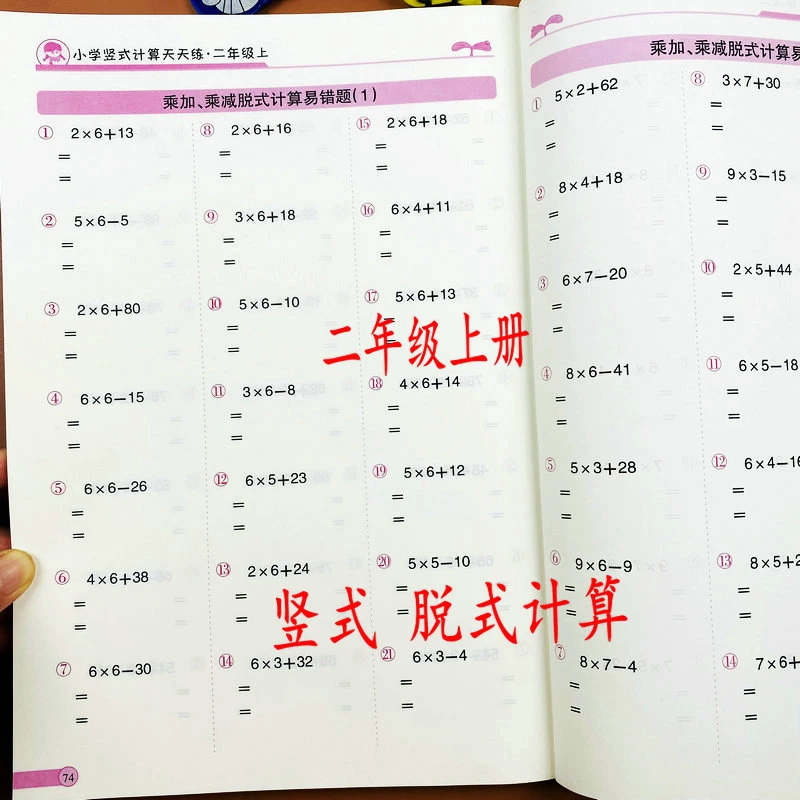 小学竖式计算天天练·二年级上
乘加、乘减脱式计算易错题(1)
① 2×6+13
=
=
② 5×6−5
=
=
③ 2×6+80
=
=
④ 6×6−15
=
=
⑤ 6×6−26
=
=
⑥ 4×6+38
=
=
⑦ 6×6−30
=
=
⑧ 2×6+16
=
=
⑨ 3×6+18
=
=
⑩ 5×6−10
=
=
⑪ 3×6−8
=
=
⑫ 6×5+23
=
=
⑬ 2×6+24
=
=
⑭ 6×3+32
=
=
⑮ 2×6+18
=
=
⑯ 6×4+11
=
=
⑰ 5×6+13
=
=
⑱ 4×6+14
=
=
⑲ 5×6+12
=
=
⑳ 5×5−10
=
=
㉑ 6×3−4
=
=
74
乘加、乘减脱式计算易
① 5×2+62
=
=
② 8×4+18
=
=
③ 6×7−20
=
=
④ 8×6−41
=
=
⑤ 5×3+28
=
=
⑥ 9×6−9
=
=
⑦ 8×7−4
=
=
⑧ 3×7+30
=
=
⑨ 9×3−15
=
=
⑩ 2×5+44
=
=
⑪ 6×5−18
=
=
⑫ 6×4−16
=
=
⑬ 8×5+2
=
=
⑭ 7×6+
=
=
二年级上册
竖式 脱式计算